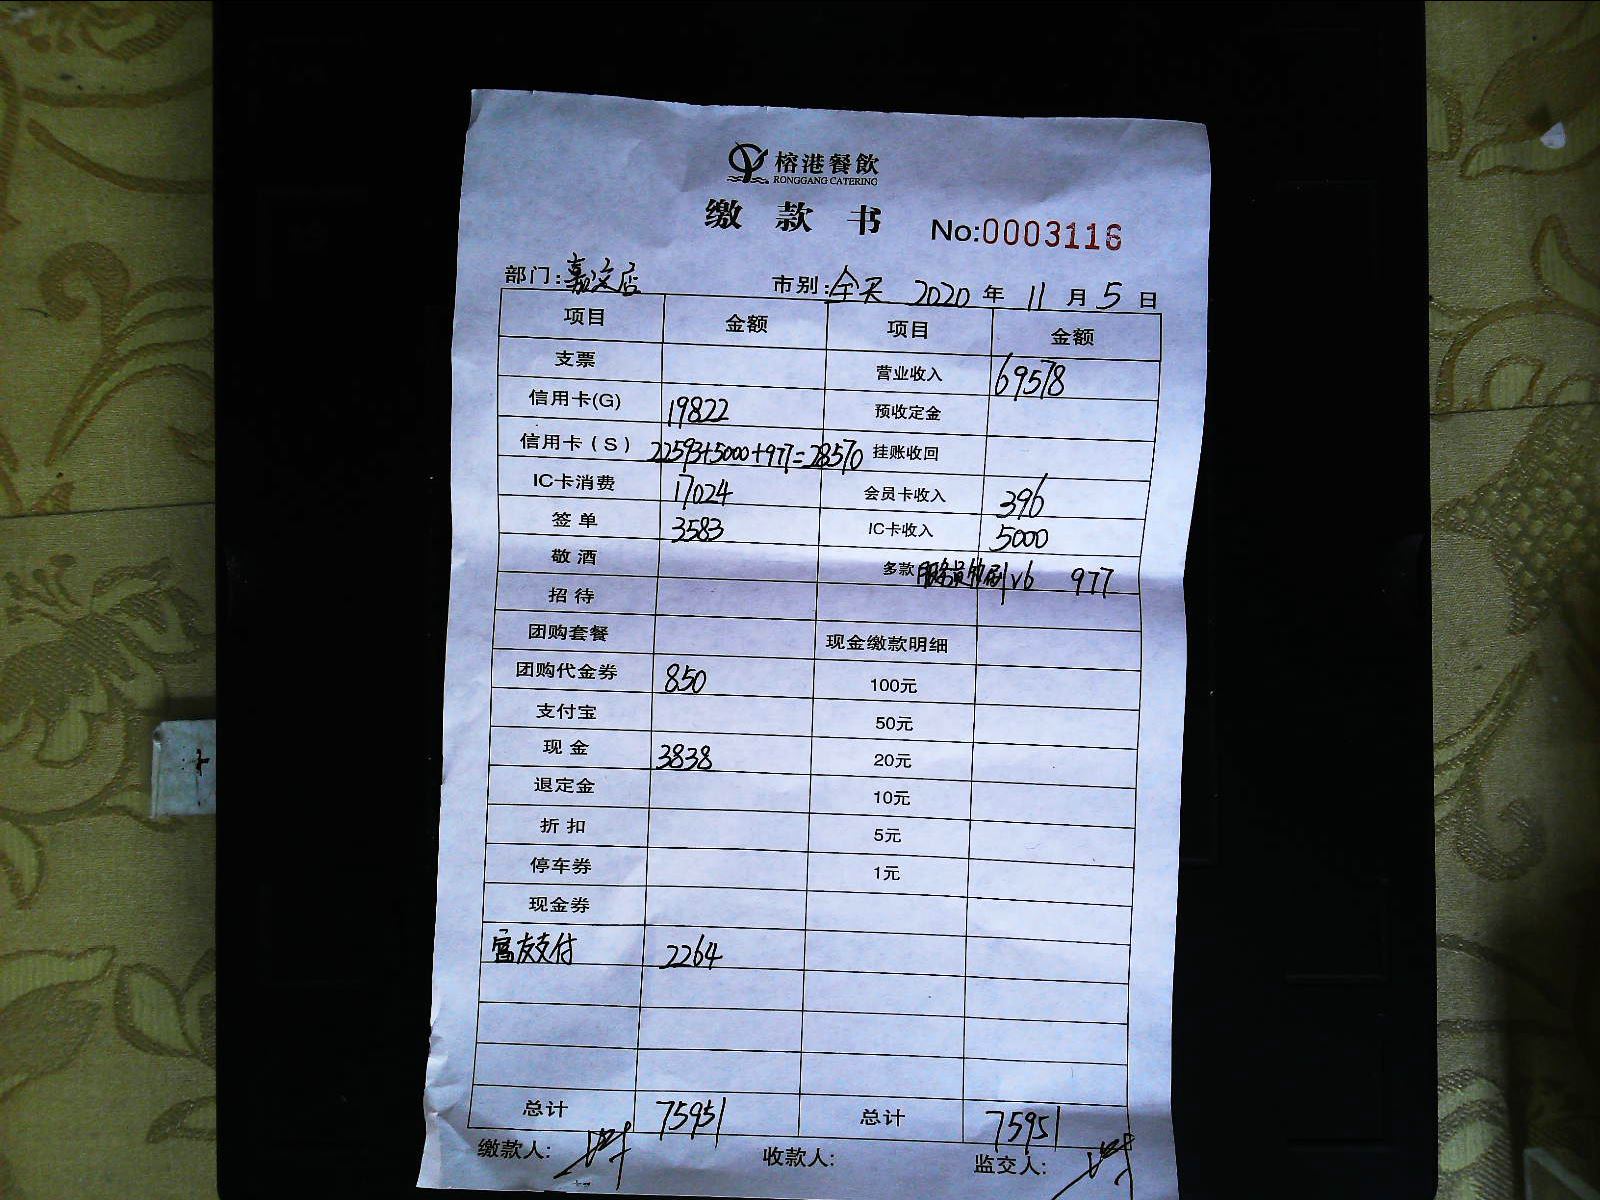 榕港餐飲
RONGGANG CATERING
缴款书 No:0003116
部门:嘉汶店 市别:全天 2020年11月5日
项目 金额 项目 金额
支票 营业收入 69578
信用卡(G) 19822 预收定金
信用卡(S) 22593+5000+977=28570 挂账收回
IC卡消费 17024 会员卡收入 396
签单 3583 IC卡收入 5000
敬酒 多款 977
招待
团购套餐 现金缴款明细
团购代金券 850 100元
支付宝 50元
现金 3838 20元
退定金 10元
折扣 5元
停车券 1元
现金券
富友支付 2264
总计 75951 总计 75951
缴款人: 收款人: 监交人: